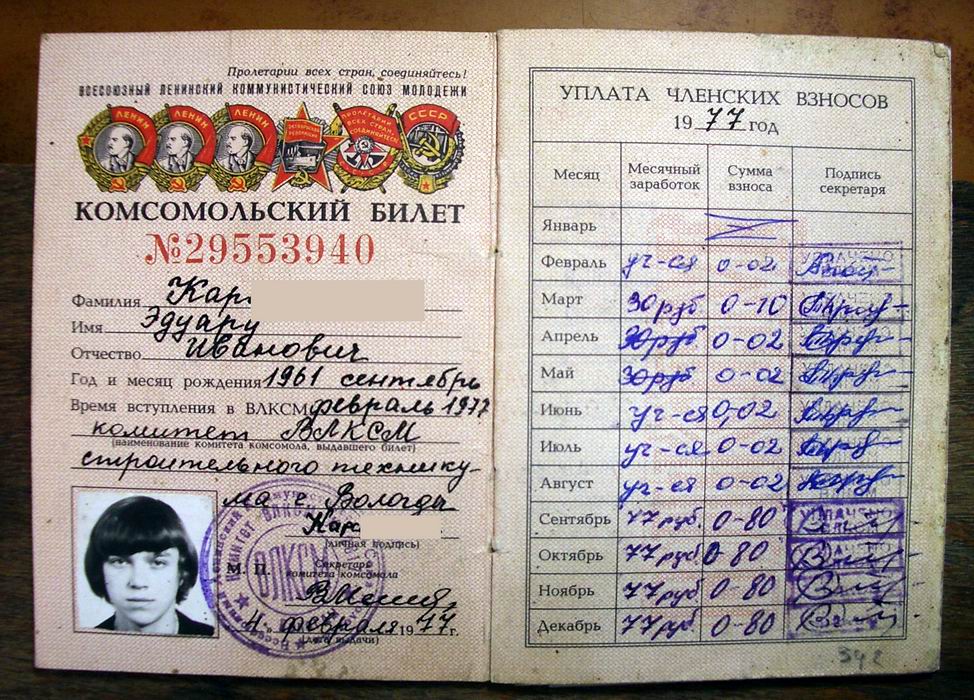 Пролетарии всех стран, соединяйтесь!
ВСЕСОЮЗНЫЙ ЛЕНИНСКИЙ КОММУНИСТИЧЕСКИЙ СОЮЗ МОЛОДЕЖИ
ЛЕНИН ЛЕНИН ЛЕНИН ОКТЯБРЬСКАЯ РЕВОЛЮЦИЯ ПРОЛЕТАРИИ ВСЕХ СТРАН СОЕДИНЯЙТЕСЬ СССР
КОМСОМОЛЬСКИЙ БИЛЕТ
№29553940
Фамилия Кар
Имя Эдуард
Отчество Иванович
Год и месяц рождения 1961 сентябрь
Время вступления в ВЛКСМ февраль 1977
комитет ВЛКСМ
(наименование комитета комсомола, выдавшего билет)
строительного технику-
ма г. Вологды
Кар
(личная подпись)
М. П.
Секретарь
комитета комсомола
4 февраля 1977 г.
(дата выдачи)
КОМИТЕТ ВЛКСМ
ВЛКСМ
УПЛАТА ЧЛЕНСКИХ ВЗНОСОВ
1977 год
Месяц Месячный заработок Сумма взноса Подпись секретаря
Январь
Февраль уч-ся 0-02
Март 30 руб 0-10
Апрель 30 руб 0-02
Май 30 руб 0-02
Июнь уч-ся 0,02
Июль уч-ся 0-02
Август уч-ся 0-02
Сентябрь 77 руб. 0-80 УПЛАЧЕНО
Октябрь 77 руб 0-80
Ноябрь 77 руб 0-80
Декабрь 77 руб. 0-80
342